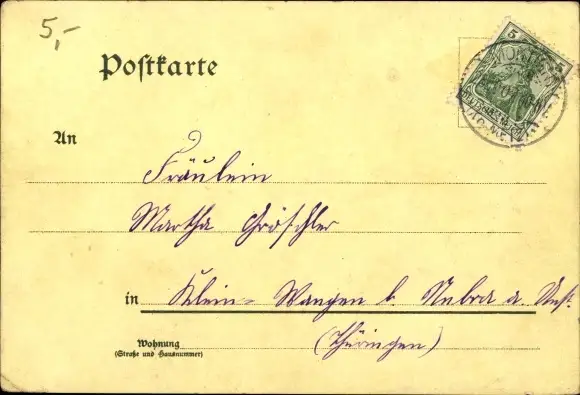 5,-
Postkarte
5 5
An
Fräulein
Martha Gröschler
in Klein-Wangen b. Nebra a. Unst.
(Thüringen)
Wohnung
(Straße und Hausnummer)